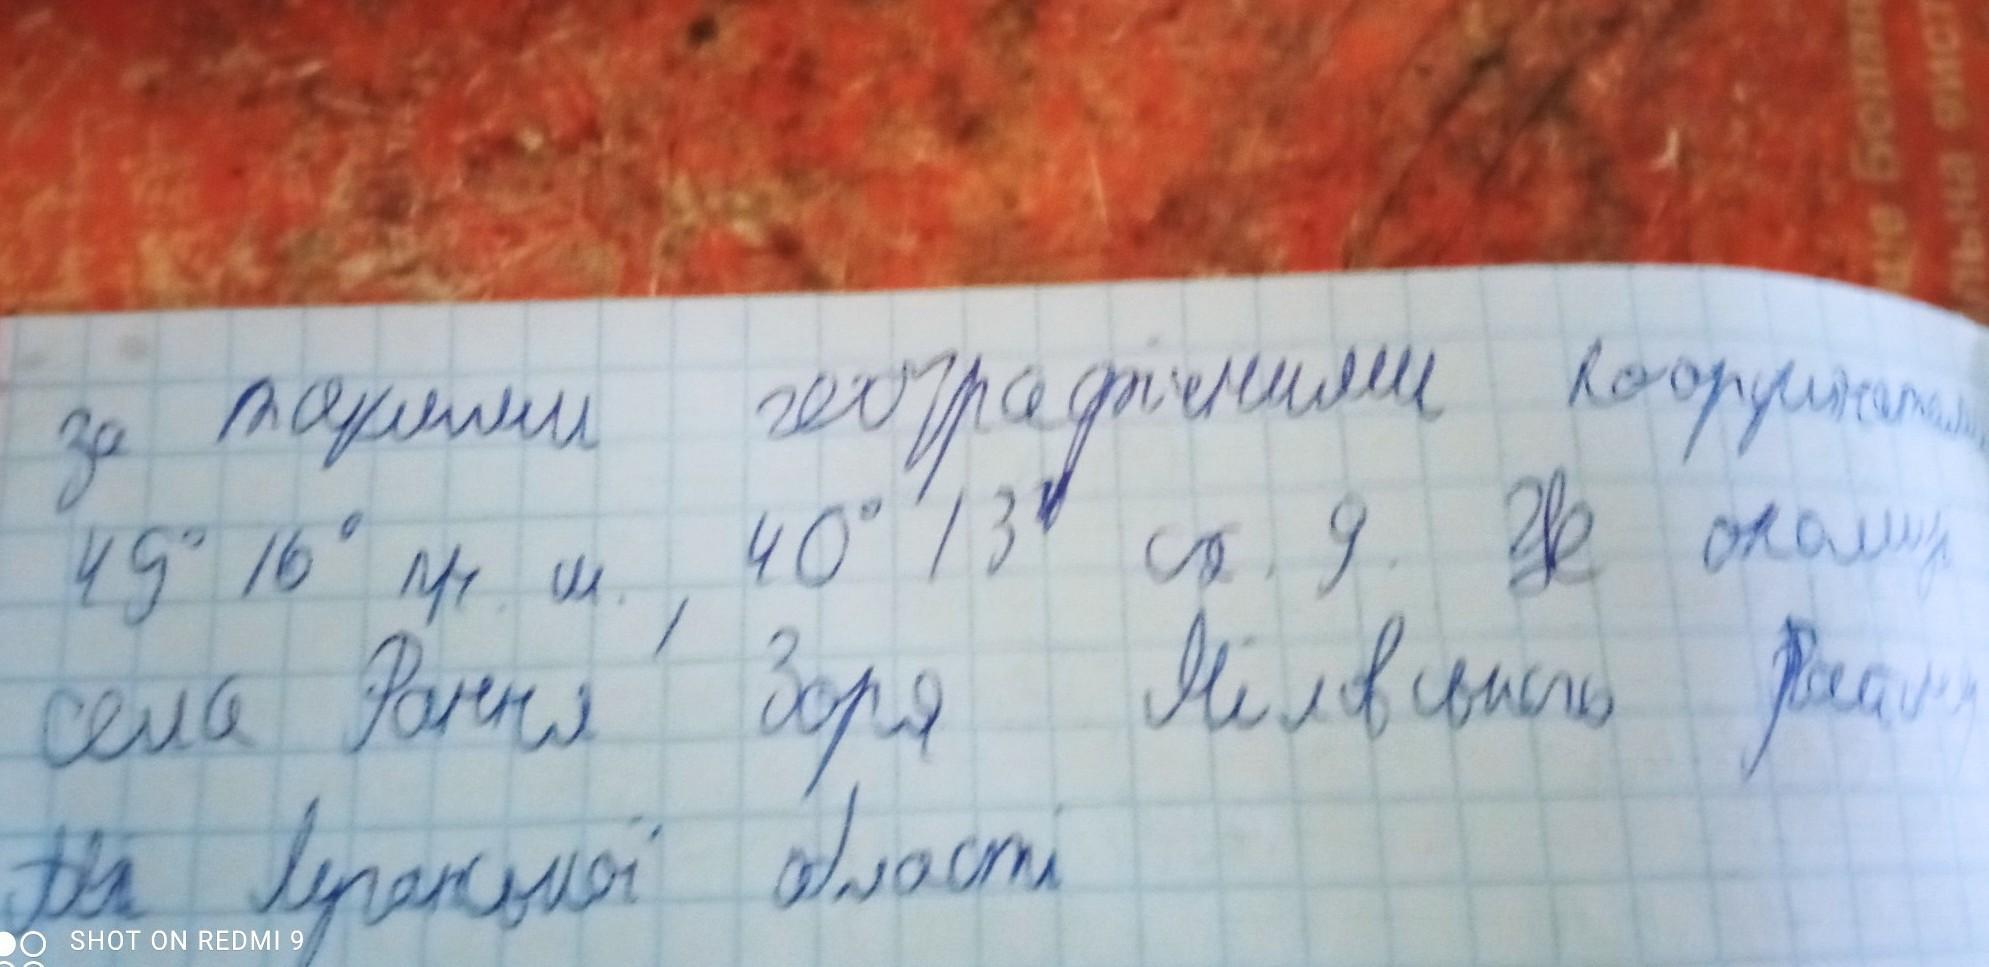 за такими географічними координатами
49° 16° пн. ш., 40° 13' сх. д. Це околиця
села Рання Зоря Міловського району
на Луганської області
SHOT ON REDMI 9